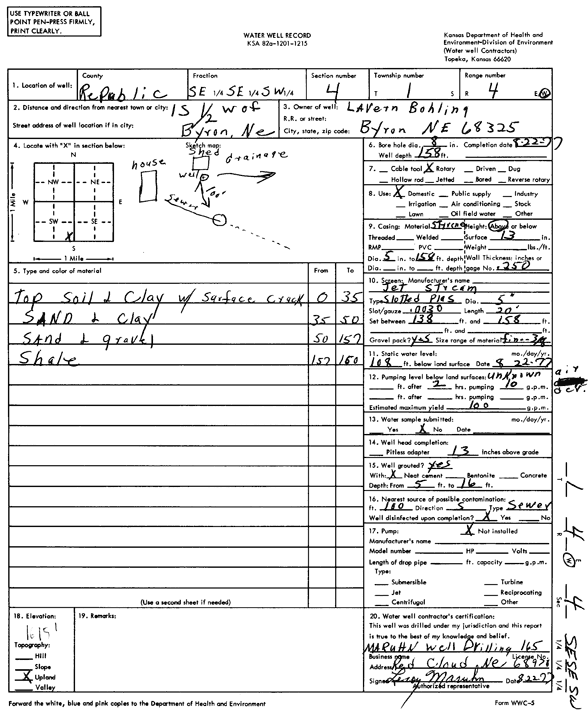 USE TYPEWRITER OR BALL
POINT PEN-PRESS FIRMLY,
PRINT CLEARLY.
WATER WELL RECORD
KSA 82a-1201-1215
Kansas Department of Health and
Environment-Division of Environment
(Water well Contractors)
Topeka, Kansas 66620
1. Location of well: County Republic Fraction SE 1/4 SE 1/4 SW 1/4 Section number 4 Township number T 1 S Range number R 4 E W
2. Distance and direction from nearest town or city: 1S 1/2 W of
Street address of well location if in city: Byron, Ne
3. Owner of well: LaVern Bohling
R.R. or street:
City, state, zip code: Byron NE 68325
4. Locate with "X" in section below:
N
NW NE
W E
SW SE
X
S
1 Mile
1 Mile
Sketch map:
house
Shed
drainage
well
100'
Sewer
5. Type and color of material From To
Top Soil & Clay w/ Surface Crack 0 35
SAND & Clay 35 50
SAnd & gravel 50 157
Shale 157 160
(Use a second sheet if needed)
6. Bore hole dia. 8 in. Completion date 8-22-77
Well depth 158 ft.
7. Cable tool X Rotary Driven Dug
Hollow rod Jetted Bored Reverse rotary
8. Use: X Domestic Public supply Industry
Irrigation Air conditioning Stock
Lawn Oil field water Other
9. Casing: Material Styrene Height: Above or below
Threaded Welded Surface 13 in.
RMP PVC Weight lbs./ft.
Dia. 5 in. to 158 ft. depth Wall Thickness: inches or
Dia. in. to ft. depth gage No. .250
10. Screen: Manufacturer's name
Jet Stream
Type Slotted Plas Dia. 5"
Slot/gauze .0030 Length 20'
Set between 138 ft. and 158 ft.
ft. and ft.
Gravel pack? yes Size range of material fine-3/8
11. Static water level: mo./day/yr.
108 ft. below land surface Date 8 22-77
12. Pumping level below land surfaces: unknown
ft. after 2 hrs. pumping 10 g.p.m.
ft. after hrs. pumping g.p.m.
Estimated maximum yield 100 g.p.m.
air
13. Water sample submitted: mo./day/yr.
Yes X No Date
14. Well head completion:
Pitless adapter 13 Inches above grade
15. Well grouted? yes
With: X Neat cement Bentonite Concrete
Depth: From 5 ft. to 16 ft.
16. Nearest source of possible contamination:
ft. 100 Direction S Type Sewer
Well disinfected upon completion? X Yes No
17. Pump: X Not installed
Manufacturer's name
Model number HP Volts
Length of drop pipe ft. capacity g.p.m.
Type:
Submersible Turbine
Jet Reciprocating
Centrifugal Other
18. Elevation:
Topography:
Hill
Slope
X Upland
Valley
19. Remarks:
20. Water well contractor's certification:
This well was drilled under my jurisdiction and this report
is true to the best of my knowledge and belief.
MARUHN Well Drilling 165
Business name License No.
Address Red Cloud, Ne 68970
Signed Leroy Maruhn Date 8-22-77
Authorized representative
T 1 R 4 E W Sec 4 SE 1/4 SE 1/4 SW 1/4
Forward the white, blue and pink copies to the Department of Health and Environment
Form WWC-5